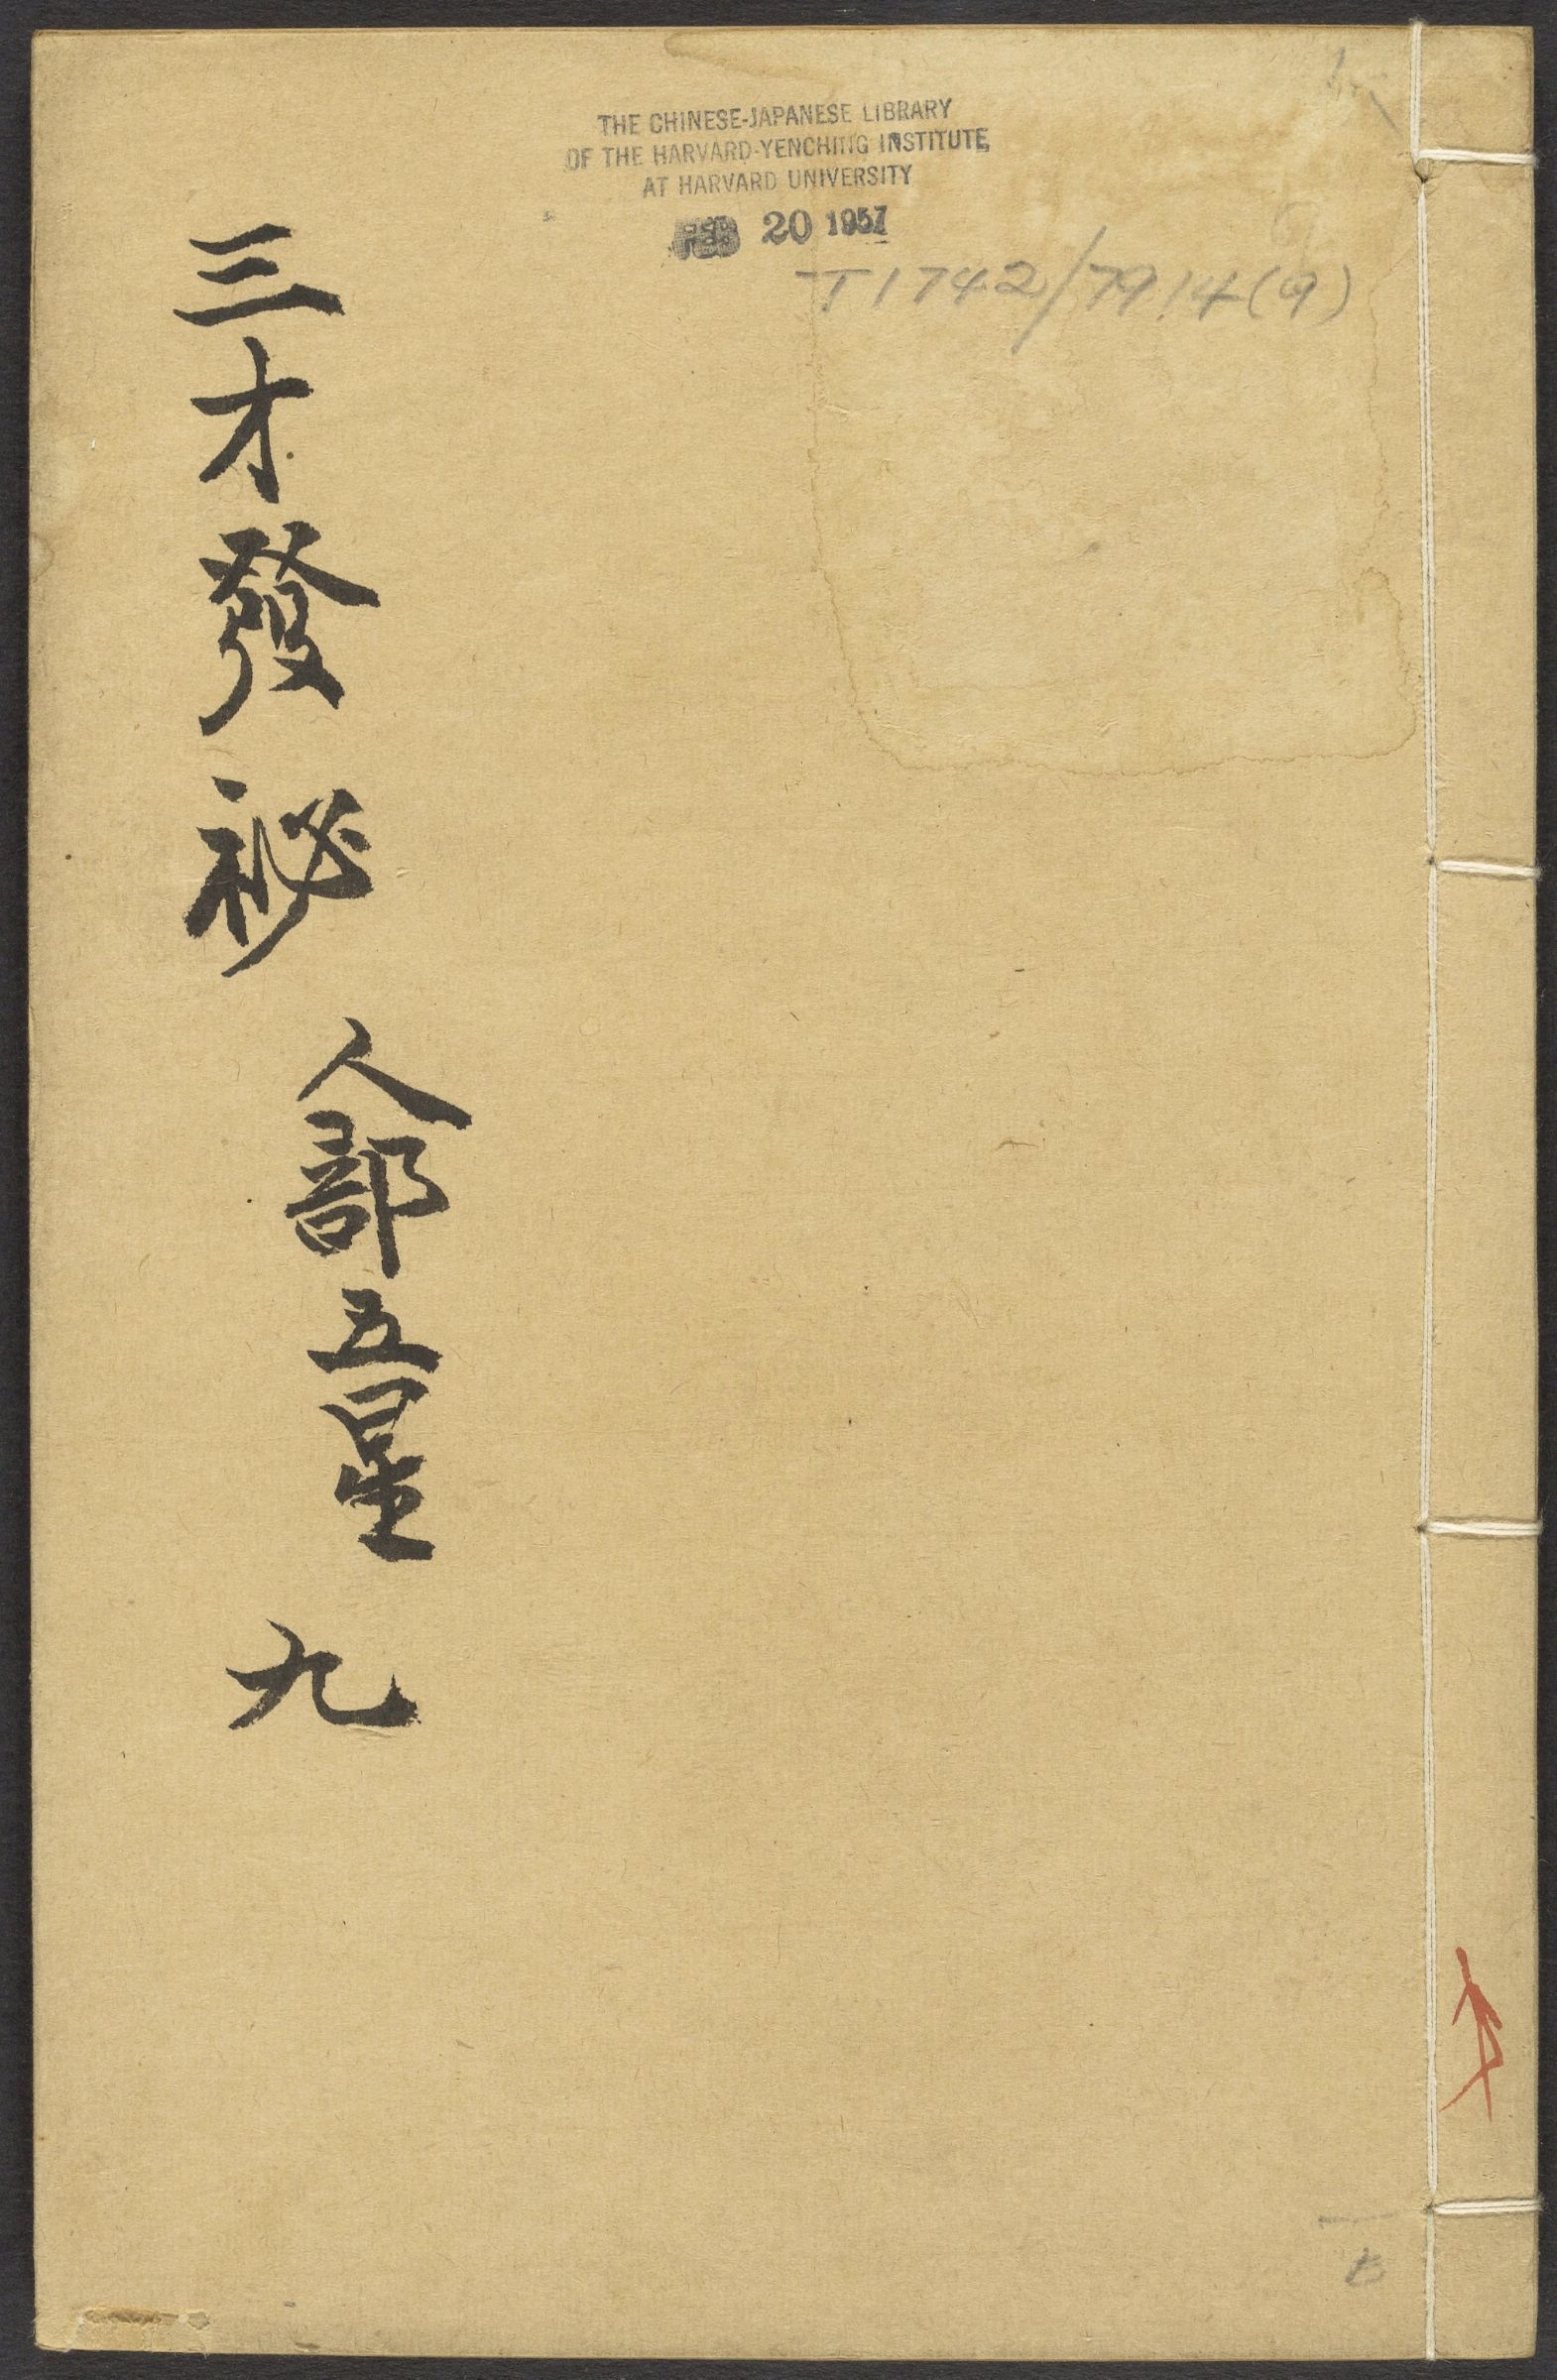 THE CHINESE-JAPANESE LIBRARY
OF THE HARVARD-YENCHING INSTITUTE
AT HARVARD UNIVERSITY
FEB 20 1957
T1742/7914(9)
三才發祕
人部五星
九